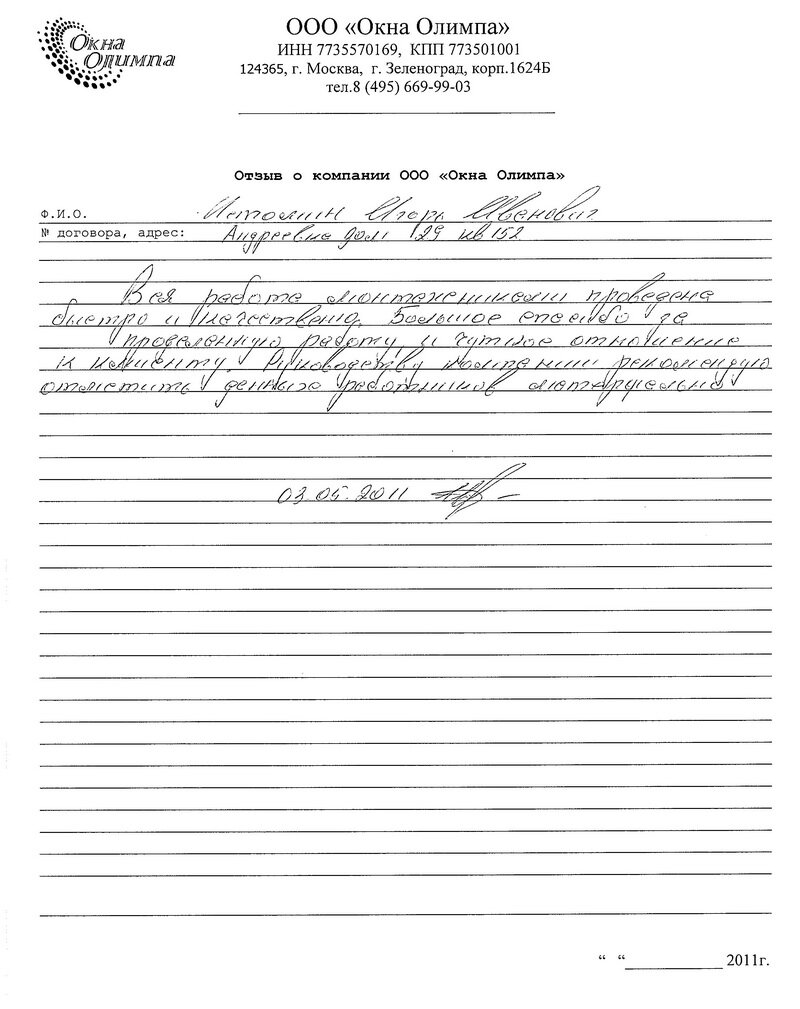 Окна
Олимпа
ООО «Окна Олимпа»
ИНН 7735570169, КПП 773501001
124365, г. Москва, г. Зеленоград, корп.1624Б
тел.8 (495) 669-99-03
Отзыв о компании ООО «Окна Олимпа»
Ф.И.О. Истомин Игорь Иванович
№ договора, адрес: Андреевка дом 29 кв 152
Вся работа монтажниками проведена
быстро и качественно. Большое спасибо за
проделанную работу и чуткое отношение
к клиенту. Руководству компании рекомендую
отметить данных работников материально
03.05.2011
“ “ 2011г.